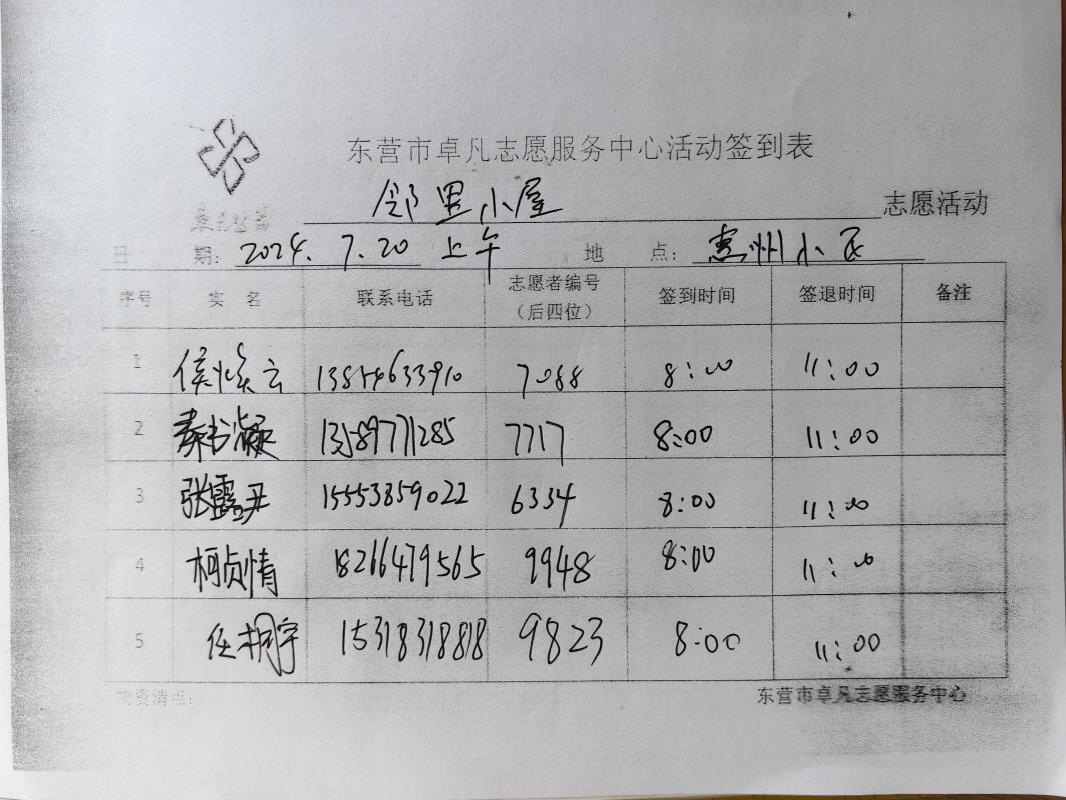 东营市卓凡志愿服务中心活动签到表
邻里小屋 志愿活动
日 期: 2024.7.20 上午 地 点: 惠州小区
序号 实 名 联系电话 志愿者编号（后四位） 签到时间 签退时间 备注
1 侯焕云 13854633910 7088 8:00 11:00
2 秦书凝 13589771285 7717 8:00 11:00
3 张露丹 15553859022 6334 8:00 11:00
4 柯贞情 18266479565 9948 8:00 11:00
5 任桐宇 15318318818 9823 8:00 11:00
物资清点: 东营市卓凡志愿服务中心